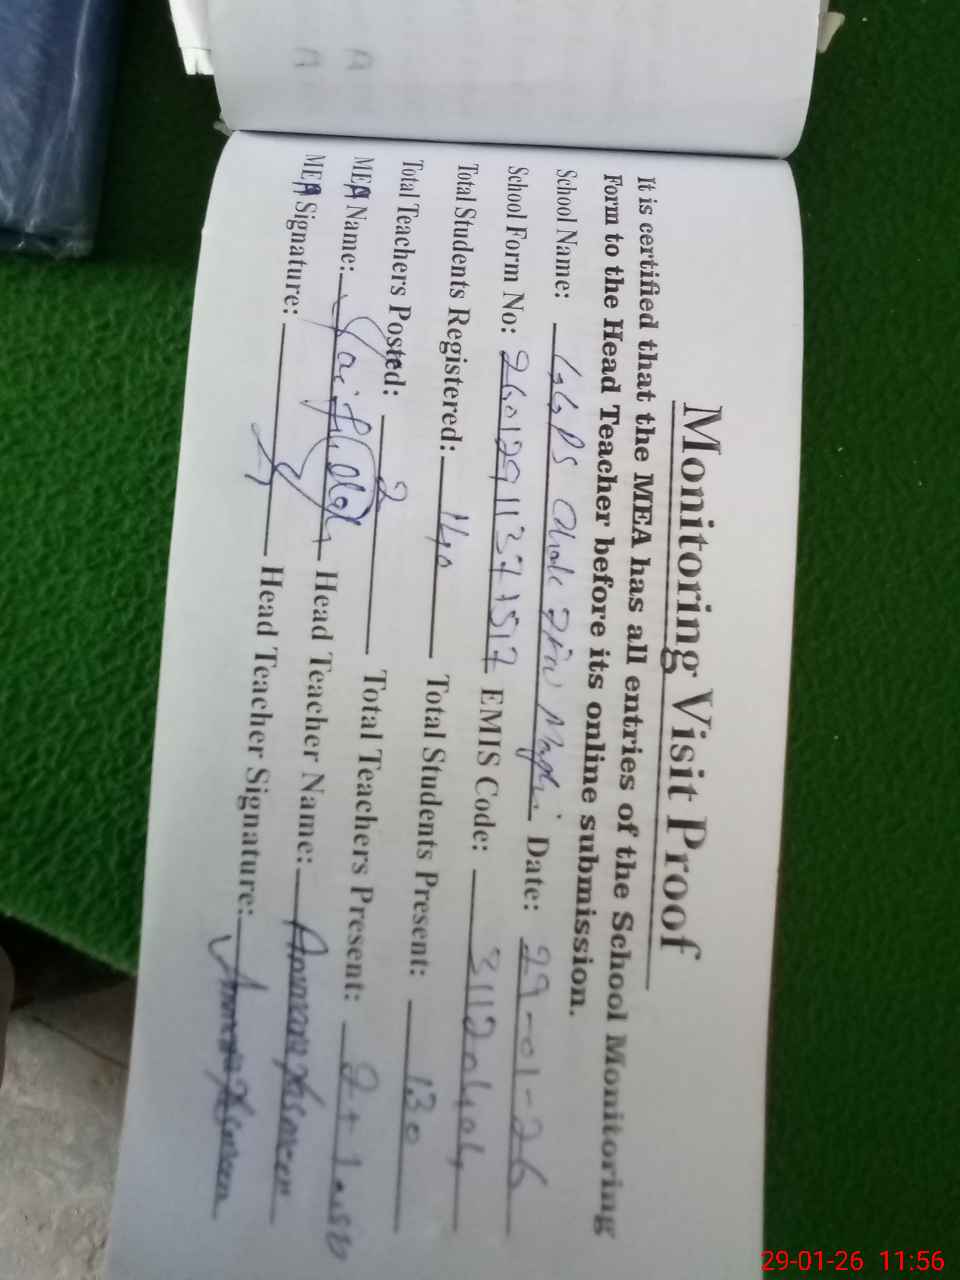 Monitoring Visit Proof
It is certified that the MEA has all entries of the School Monitoring
Form to the Head Teacher before its online submission.
School Name: GGPS Chak Date: 29-01-26
School Form No: EMIS Code: 31120404
Total Students Registered: 140 Total Students Present: 130
Total Teachers Posted: 2 Total Teachers Present: 2+1
MEA Name: Head Teacher Name:
MEA Signature: Head Teacher Signature:
29-01-26 11:56